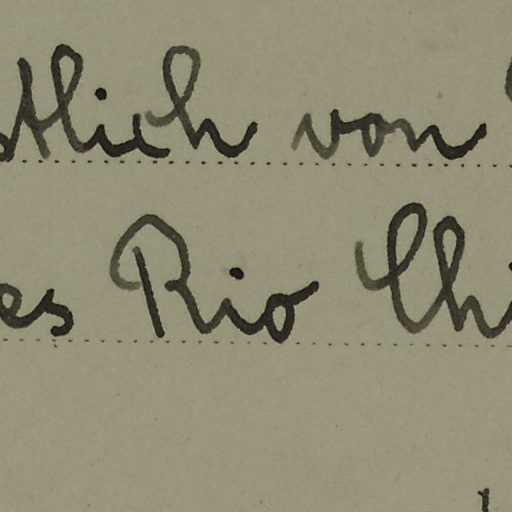 stlich von
es Rio Chi